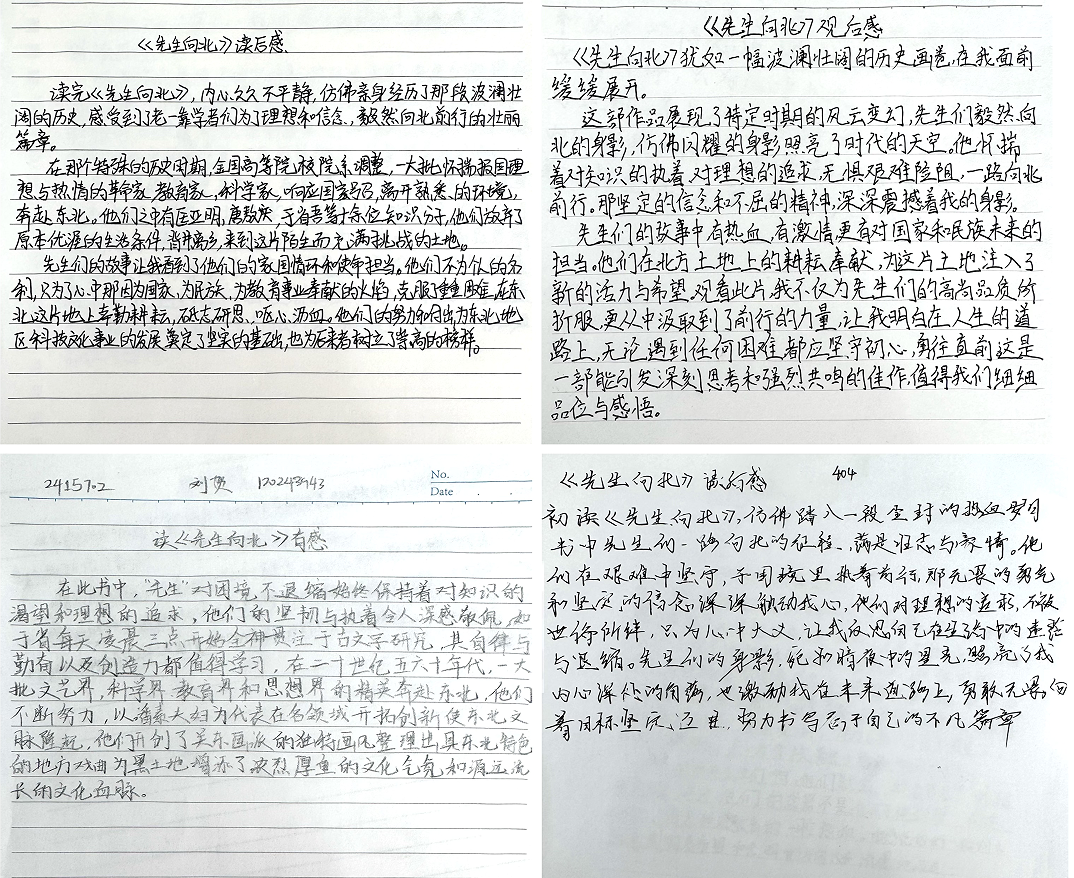 《先生向北》读后感
读完《先生向北》，内心久久不平静，仿佛亲身经历了那段波澜壮
阔的历史，感受到了老一辈学者们为了理想和信念，毅然向北前行的壮丽
篇章。
在那个特殊的历史时期，全国高等院校院系调整，一大批怀揣报国理
想与热情的革命家，教育家，科学家，响应国家号召，离开熟悉的环境，
奔赴东北。他们之中有匡亚明，唐敖庆，于省吾等十余位知识分子，他们放弃了
原本优渥的生活条件，背井离乡，来到这片陌生而充满挑战的土地。
先生们的故事让我看到了他们的家国情怀和使命担当。他们不为个人的名
利，只为了心中那团为国家，为民族，为教育事业奉献的火焰，克服重重困难，在东
北这片地上辛勤耕耘，矢志研思，呕心沥血。他们的努力不仅为东北地
区科技文化事业的发展奠定了坚实的基础，也为后来者树立了崇高的榜样。
《先生向北》观后感
《先生向北》犹如一幅波澜壮阔的历史画卷，在我面前
缓缓展开。
这部作品展现了特定时期的风云变幻，先生们毅然向
北的身影，仿佛闪耀的身影照亮了时代的天空。他怀揣
着对知识的执着，对理想的追求，无惧艰难险阻，一路向北
前行。那坚定的信念和不屈的精神，深深震撼着我的身影。
先生们的故事中有热血，有激情，更有对国家和民族未来的
担当。他们在北方土地上的耕耘奉献，为这片土地注入了
新的活力与希望。观看此片，我不仅为先生们的高尚品质所
折服，更从中汲取到了前行的力量，让我明白在人生的道
路上，无论遇到任何困难都应坚守初心，勇往直前这是
一部能引发深刻思考和强烈共鸣的佳作，值得我们细细
品位与感悟。
2415702 刘贺 120243943
No.
Date
读《先生向北》有感
在此书中，“先生”对困境，不退缩始终保持着对知识的
渴望和理想的追求，他们的坚韧与执着令人深感敬佩，如
于省每天凌晨三点开始全神贯注于古文字研究，其自律与
勤奋以及创造力都值得学习，在二十世纪五六十年代，一大
批文艺界，科学界教育界和思想界的精英奔赴东北，他们
不断努力，以潘素夫妇为代表在各领域开拓创新使东北文
脉隆起，他们开创了关东画派的独特画风整理出具东北特色
的地方戏曲为黑土地增添了浓烈厚重的文化气氛和源远流
长的文化血脉。
《先生向北》读后感 404
初读《先生向北》，仿佛踏入一段尘封的热血岁月
书中先生们一路向北的征程，满是壮志与豪情。他
们在艰难中坚守，于困境里执着前行，那无畏的勇气
和坚定的信念深深触动我心，他们对理想的追求，不被
世俗所绊，只为心中大义，让我反思自己在生活中的迷茫
与退缩。先生们的身影，宛如暗夜中的星光，照亮了我
内心深处的角落，也激励我在未来道路上，勇敢无畏，向
着目标坚定迈进，努力书写属于自己的不凡篇章